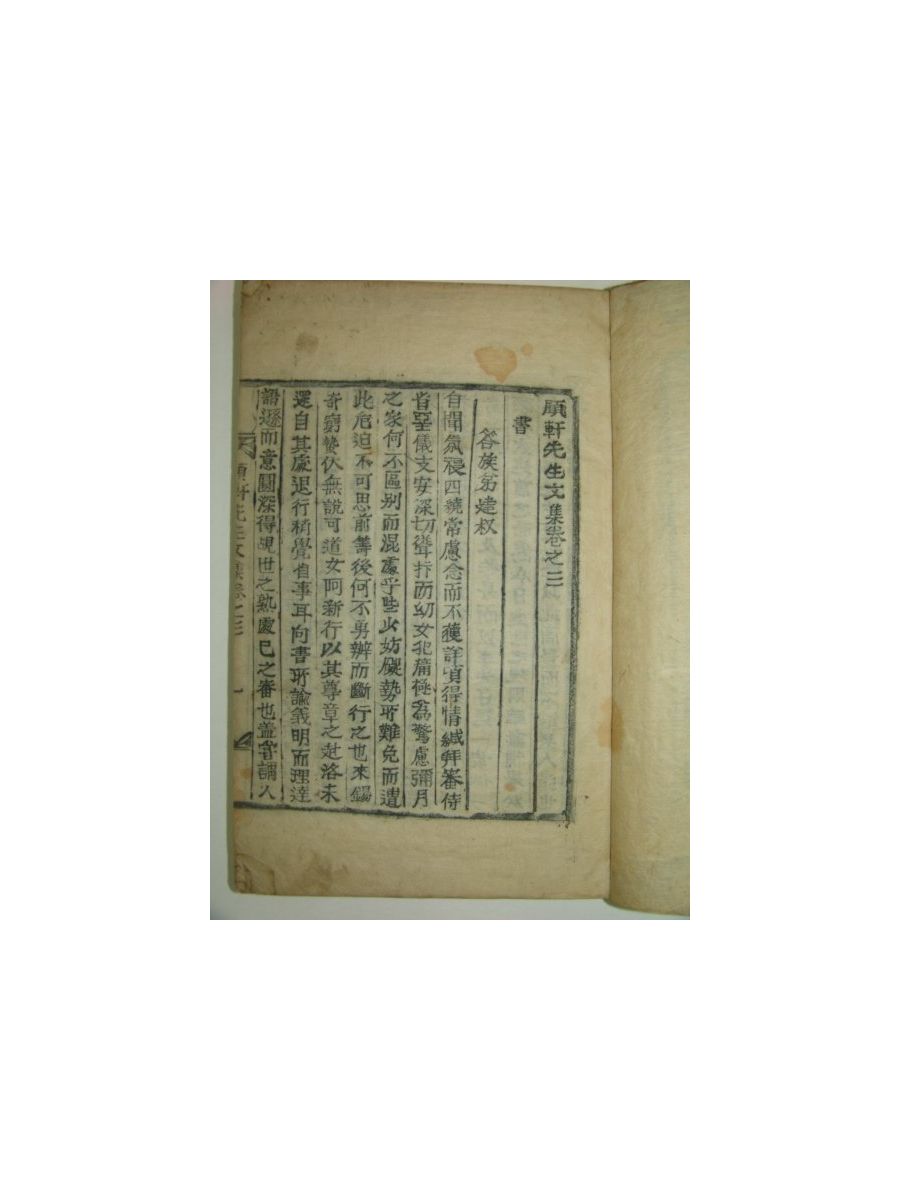 頤軒先生文集卷之三
書
答族弟建叔
自聞氛祲四繞常慮念而不獲詳頃得情緘拜審侍
省堂儀支安深切聳抃而幼女化痛極爲驚慮彌月
之家何不區別而混處乎些少妨碍勢所難免而遭
此危迫不可思前籌後何不勇辦而斷行之也來錫
奇窮蟄伏無說可道女阿新行以其尊章之赴洛未
還自其處退行稍覺省事耳向書所諭義明而理達
語遜而意圓深得覘世之熟處已之審也盖嘗謂人
軒先生文集卷之三
一